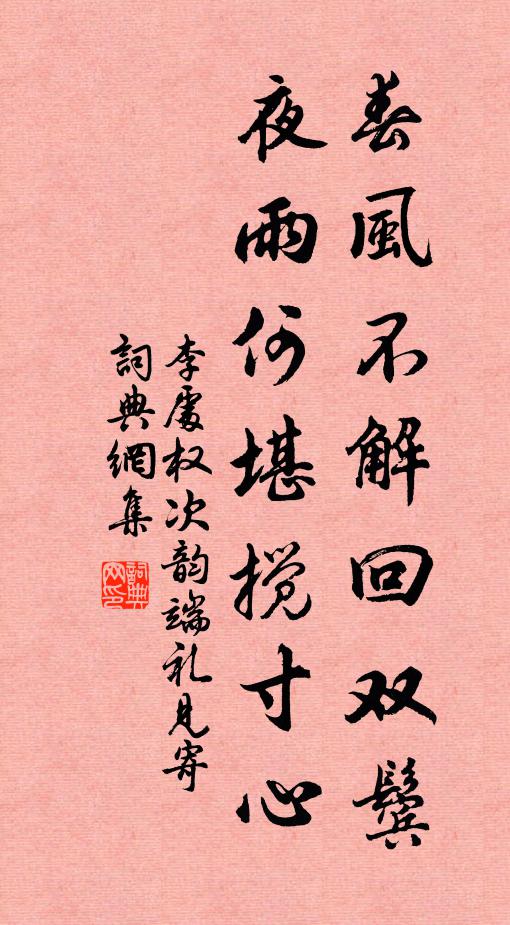 春風不解回双鬓
夜雨何堪搅寸心
李處权次韵端礼見寄
詞典網集
詞典
网印